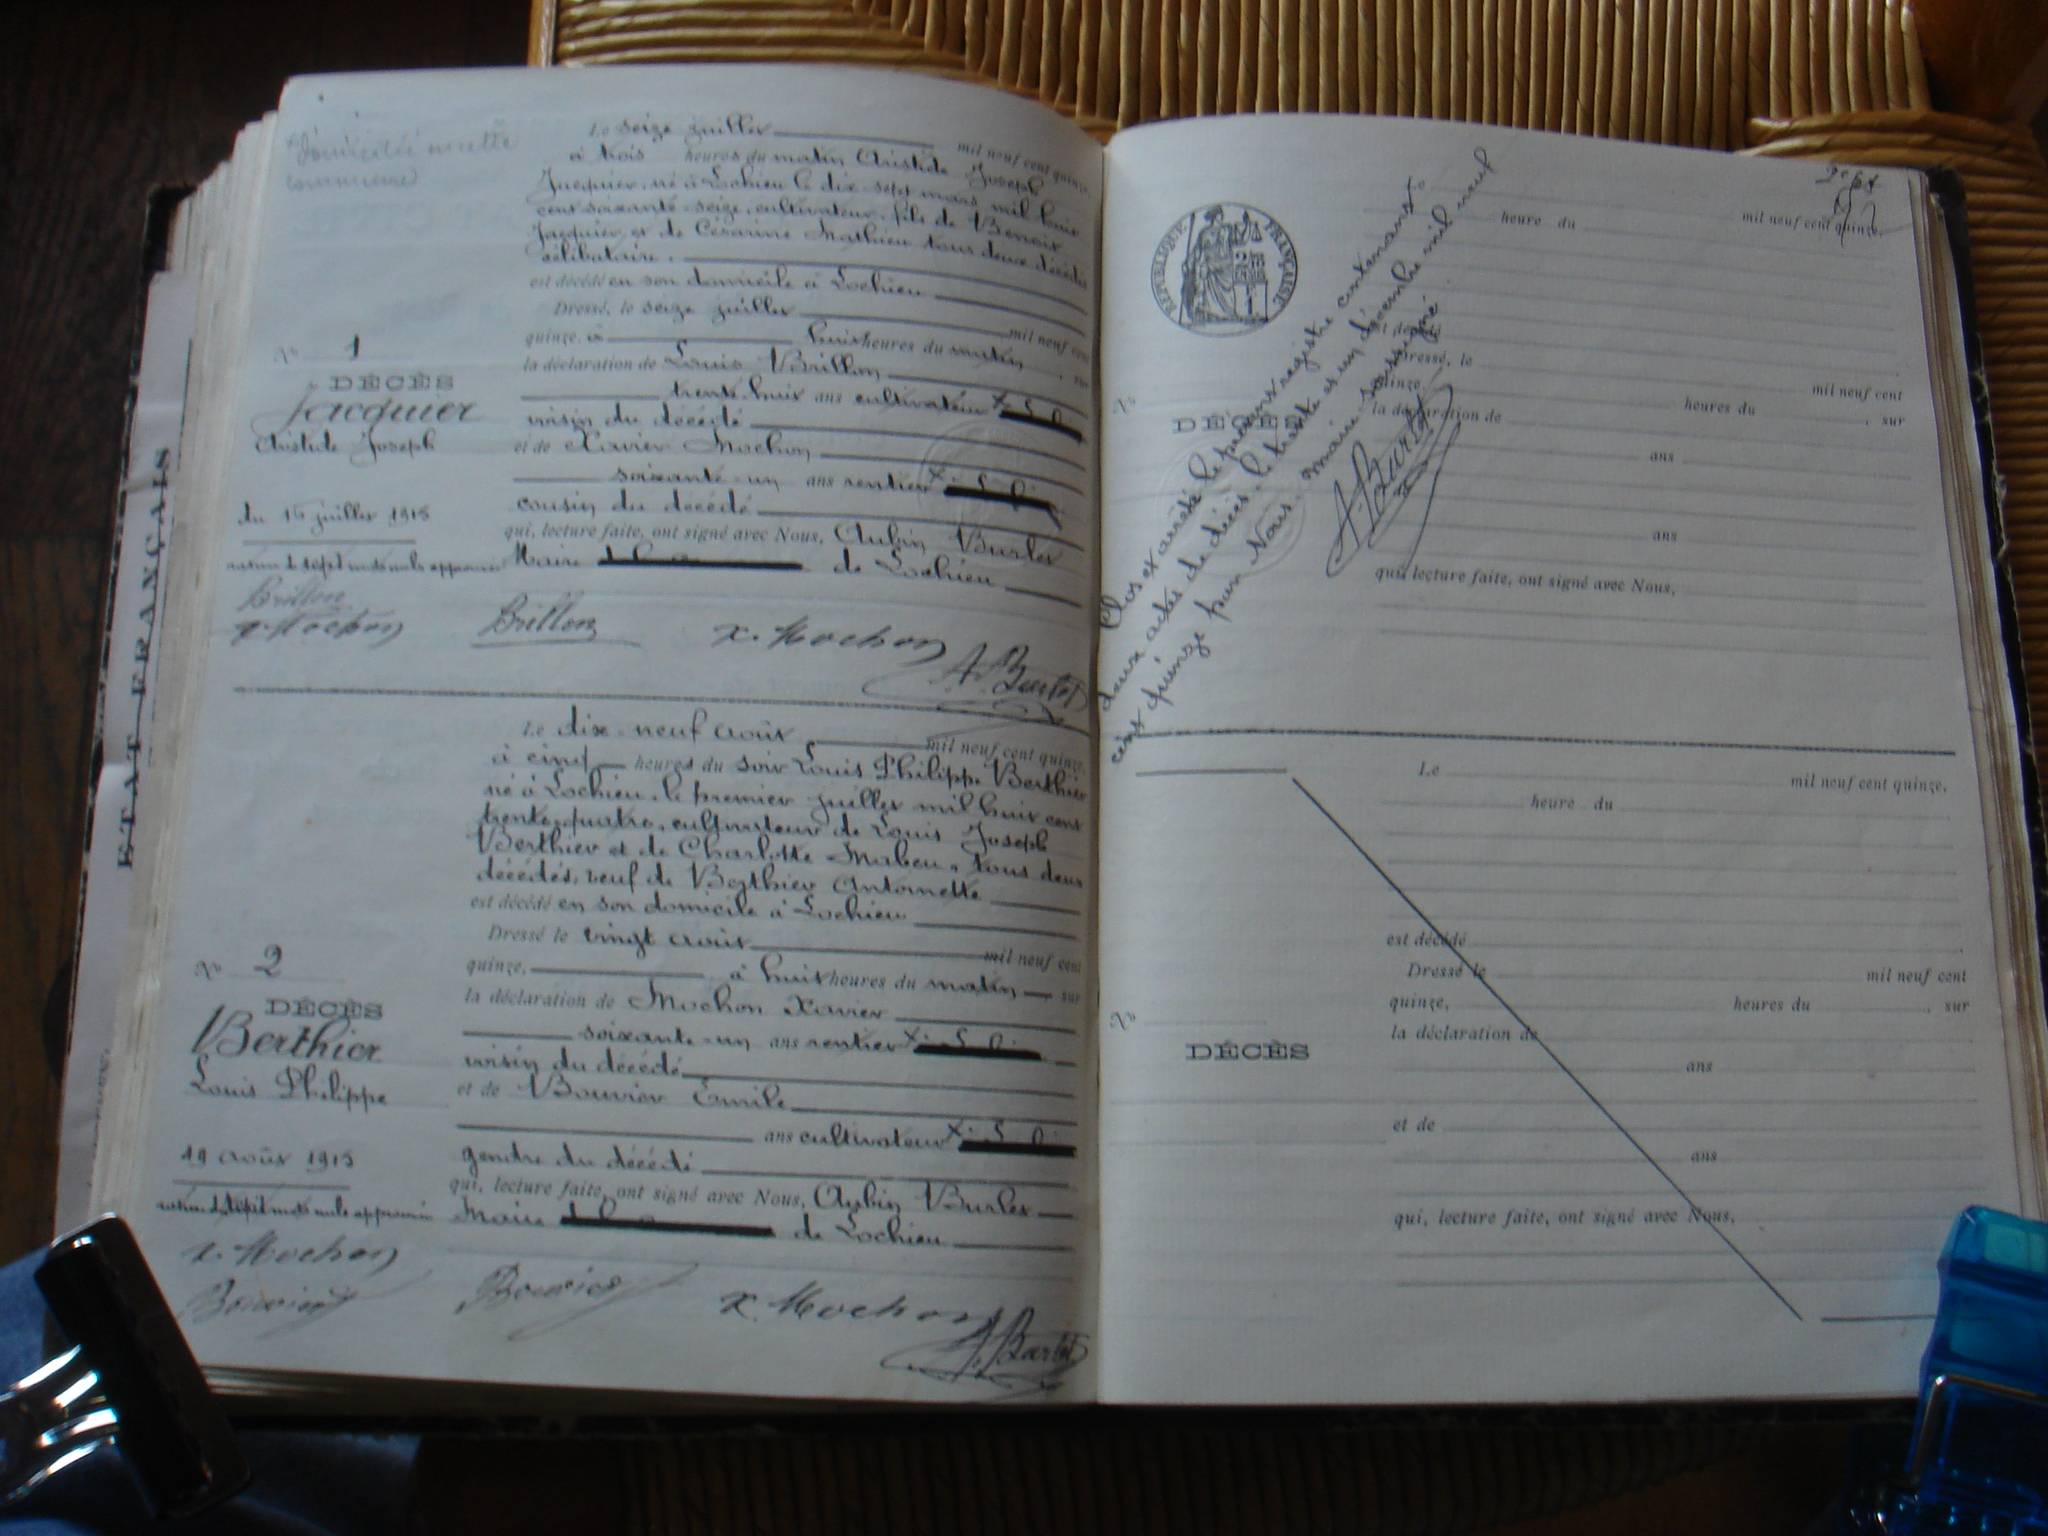 Domiciliée en cette
commune
Le seize juillet mil neuf cent quinze,
à trois heures du matin Aristide Joseph
Jacquier, né à Lochieu le dix-sept mars mil huit
cent soixante-seize, cultivateur, fils de Benoit
Jacquier et de Césarine Mathieu tous deux décédés
célibataire.
est décédé en son domicile à Lochieu
Dressé, le seize juillet mil neuf cent
quinze, à huit heures du matin, sur
la déclaration de Louis Brillon
trente-huit ans cultivateur
voisin du décédé
et de Xavier Mochon
soixante-un ans rentier
cousin du décédé
qui, lecture faite, ont signé avec Nous, Aubin Burlet
Maire de Lochieu
No 1
DÉCÈS
Jacquier
Aristide Joseph
du 16 juillet 1915
mots nuls approuvés
Brillon
x. Mochon
Brillon
x. Mochon
A. Burlet
Le dix-neuf août mil neuf cent quinze,
à cinq heures du soir Louis Philippe Berthier
né à Lochieu, le premier juillet mil huit cent
trente-quatre, cultivateur de Louis Joseph
Berthier et de Charlotte Mabeu, tous deux
décédés, veuf de Berthier Antoinette
est décédé en son domicile à Lochieu
Dressé le vingt août mil neuf cent
quinze, à huit heures du matin, sur
la déclaration de Mochon Xavier
soixante-un ans rentier
voisin du décédé
et de Bouvier Émile
ans cultivateur
gendre du décédé
qui, lecture faite, ont signé avec Nous, Aubin Burlet
Maire de Lochieu
No 2
DÉCÈS
Berthier
Louis Philippe
19 août 1915
mots nuls approuvés
x. Mochon
Bouvier
Bouvier
x. Mochon
A. Burlet
ETAT FRANÇAIS
RÉPUBLIQUE FRANÇAISE
heure du mil neuf cent quinze,
est décédé
Dressé, le mil neuf cent
quinze, heures du , sur
la déclaration de
ans
ans
qui, lecture faite, ont signé avec Nous,
No
DÉCÈS
Clos et arrêté le présent registre contenant
deux actes de décès, le trente et un décembre mil neuf
cent quinze par Nous, maire soussigné
A. Burlet
Le mil neuf cent quinze,
heure du
est décédé
Dressé le mil neuf cent
quinze, heures du , sur
la déclaration de
ans
et de
ans
qui, lecture faite, ont signé avec Nous,
No
DÉCÈS